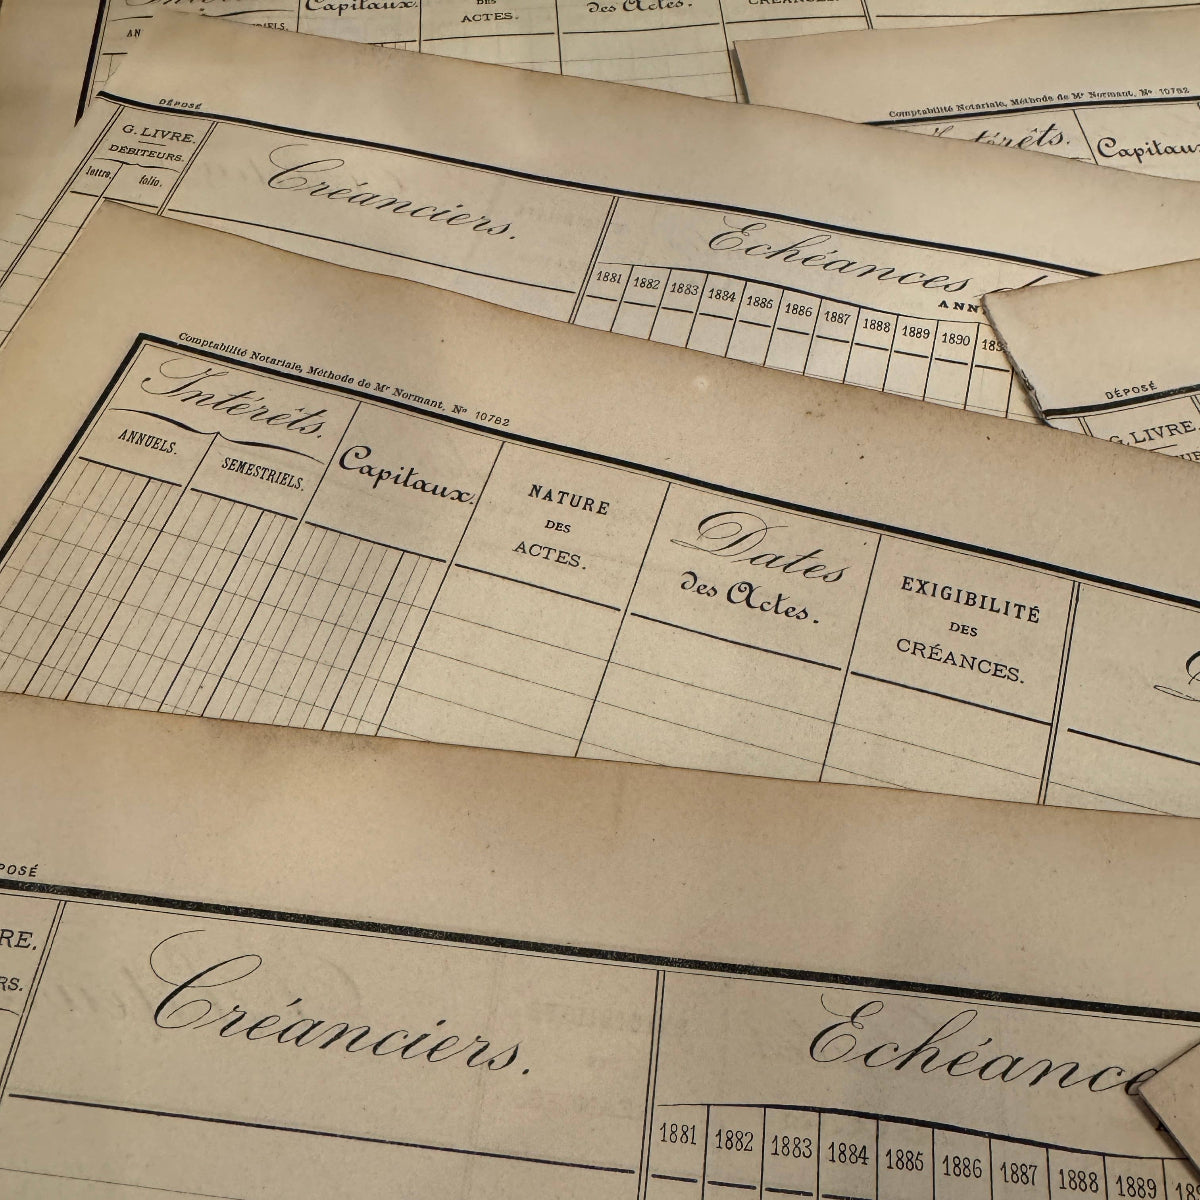 Capitaux.
DES
ACTES.
des Actes.
CRÉANCES.
AN
Comptabilité Notariale, Méthode de Mr Normant, No 10782
Intérêts.
Capitaux
DÉPOSÉ
G. LIVRE.
DÉBITEURS.
lettre.
folio.
Créanciers.
Echéances d
ANN
1881 1882 1883 1884 1885 1886 1887 1888 1889 1890 189
DÉPOSÉ
G. LIVRE.
Comptabilité Notariale, Méthode de Mr Normant, No 10782
Intérêts.
ANNUELS.
SEMESTRIELS.
Capitaux.
NATURE
DES
ACTES.
Dates
des Actes.
EXIGIBILITÉ
DES
CRÉANCES.
POSÉ
RE.
RS.
Créanciers.
Echéance
1881 1882 1883 1884 1885 1886 1887 1888 1889